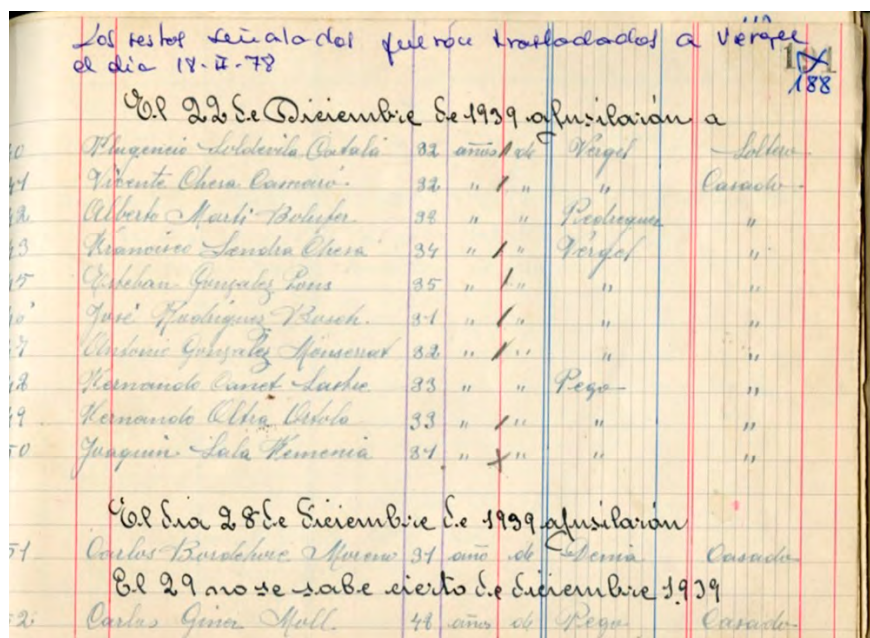 Los restos señalados fueron trasladados a Vergel
el dia 18-II-78
188
El 22 de Diciembre de 1939 afusilarón a
Soldevila Catalá 32 años de Vergel Soltero
41 Vicente Chesa Camaró. 32 " " " Casado
42 Alberto Marti Bolufer 38 " " Pedreguer "
43 Francisco Sendra Chesa 34 " " Vergel "
45 Esteban Gonzalez Pons 35 " " " "
José Rodriguez Bosch. 31 " " " "
47 Antonio Gonzalez Monserrat 32 " " " "
48 Fernando Canet Sastre 33 " " Pego "
49 Fernando Oltra 33 " " " "
50 Joaquin Sala 31 " " " "
El dia 28 de diciembre de 1939 afusilarón
51 Carlos Moreno 31 año de Denia Casado
El 29 no se sabe cierto de diciembre 1939
52 Carlos Giner Moll. 48 años de Pego Casado